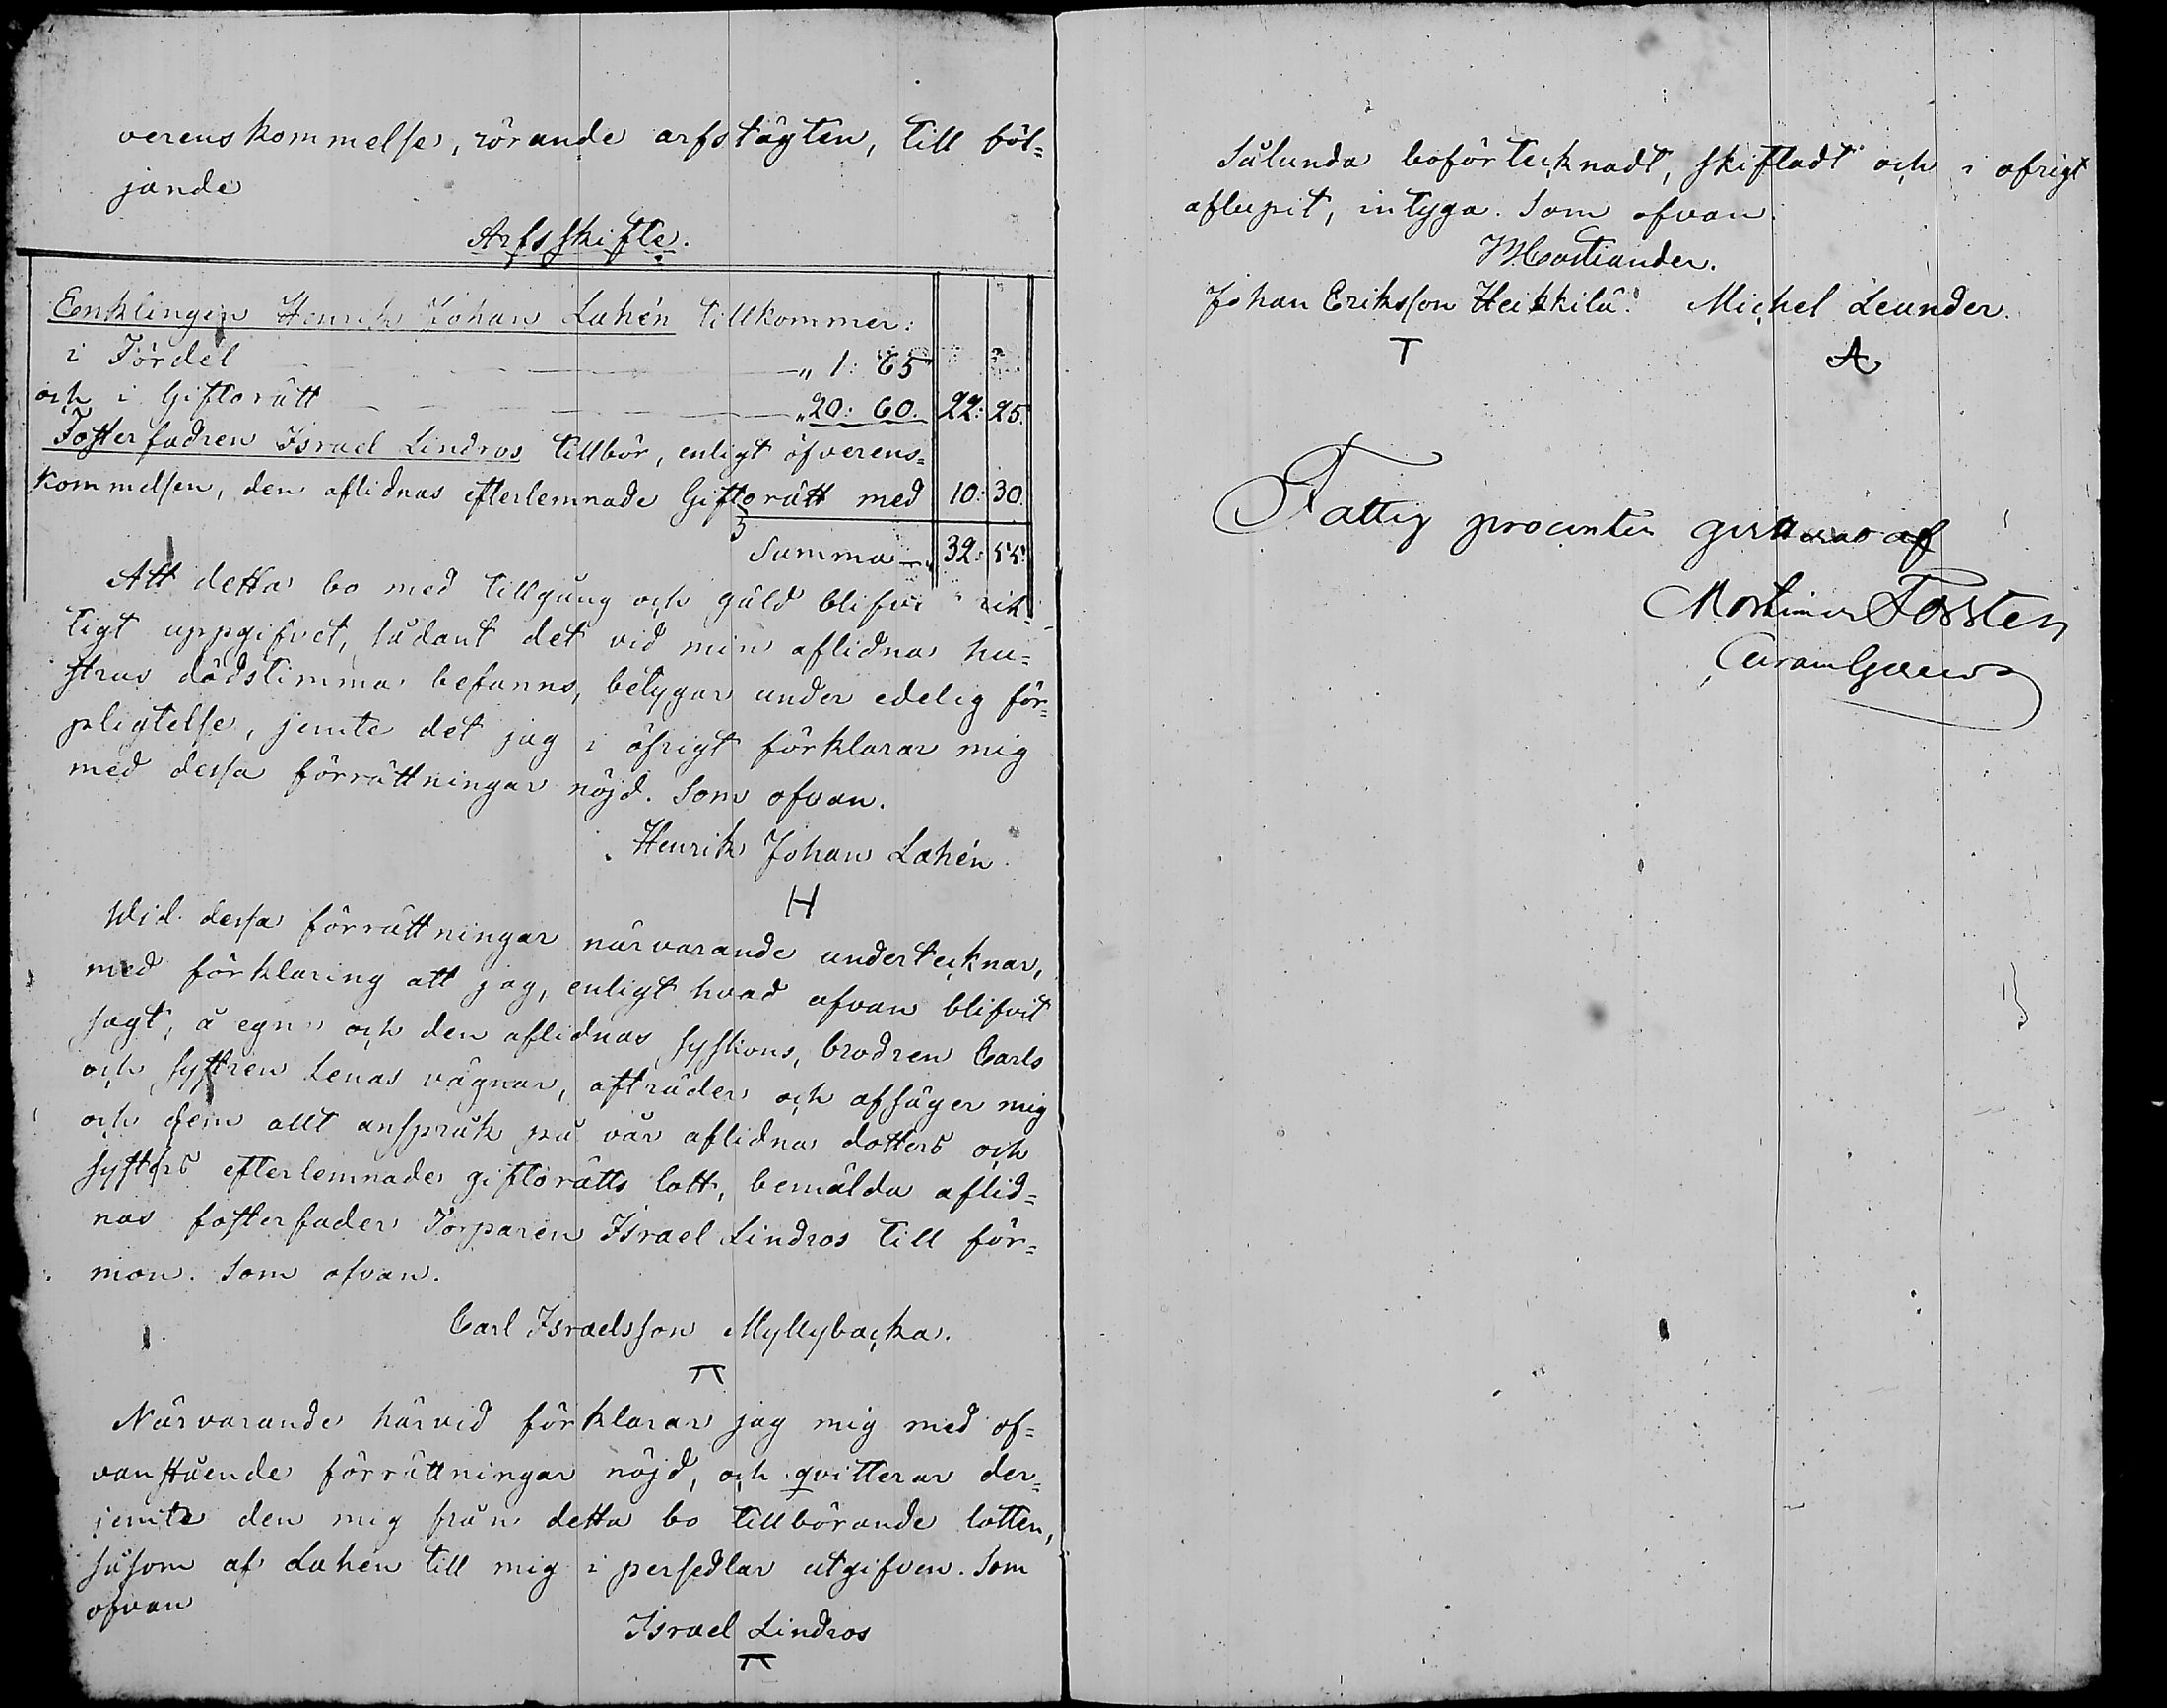 verenskommelse, rörande arfstägten, till föl=
jande
Arfsskifte.
Enklingen Henrik Johan Lahén tillkommer:
i Fördel „ 1: 65
och i Giftorätt „ 20: 60. 22: 25.
Fosterfadren Israel Lindros tillbör, enligt öfverens=
kommelsen, den aflidnas efterlemnade Giftorätt med 10: 30.
Summa 32: 55.
Att detta bo med tillgång och gäld blifvi rik=
tigt uppgifvet, sådant det vid min aflidna hu=
strus dödstimma befanns, betygar under edelig för=
pligtelse, jemte det jag i öfrigt förklarar mig
med dessa förrättningar nöjd. Som ofvan.
Henrik Johan Lahén
H
Wid dessa förrättningar närvarande undertecknar,
med förklaring att jag, enligt hvad ofvan blifvit
sagt, å egna och den aflidnas syskons, brodren Carls
och systren Lenas vägnar, afträder och afsäger mig
och dem allt anspråk på vår aflidna dotters och
systers efterlemnade giftorätts lott, bemälda aflid=
nas fosterfader Torparen Israel Lindros till för=
mon. Som ofvan.
Carl Israelsson Myllybacka.
Närvarande härvid förklarar jag mig med of=
vanstående förrättningar nöjd, och qvitterar der=
jemte den mig från detta bo tillbörande lotten,
såsom af Lahén till mig i persedlar utgifven. Som
ofvan
Israel Lindros
Sålunda boförtecknadt, skiftadt och i öfrigt
aflupit, intyga. Som ofvan.
Johan Eriksson Heikkilä. Michel Leander.
T A
Fattig procenten af
Mortimer Forsten